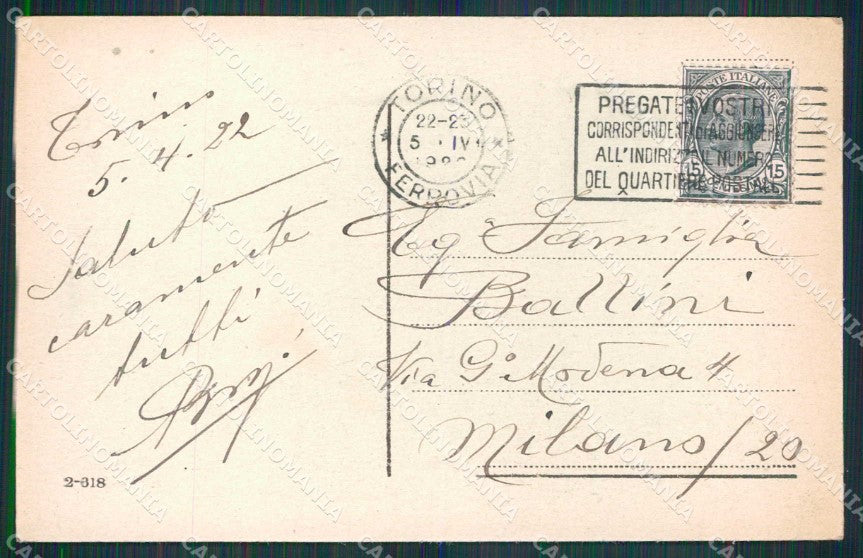 Torino
5. 4. 22
Saluto
caramente
tutti
2-318
TORINO
22-23
5 · IV
FERROVIA
PREGATE I VOSTRI
CORRISPONDENTI DI AGGIUNGERE
ALL'INDIRIZZO IL NUMERO
DEL QUARTIERE POSTALE
POSTE ITALIANE
15 15
Famiglia
Ballini
Via G. Modena 4
Milano/20
CARTOLINOMANIA